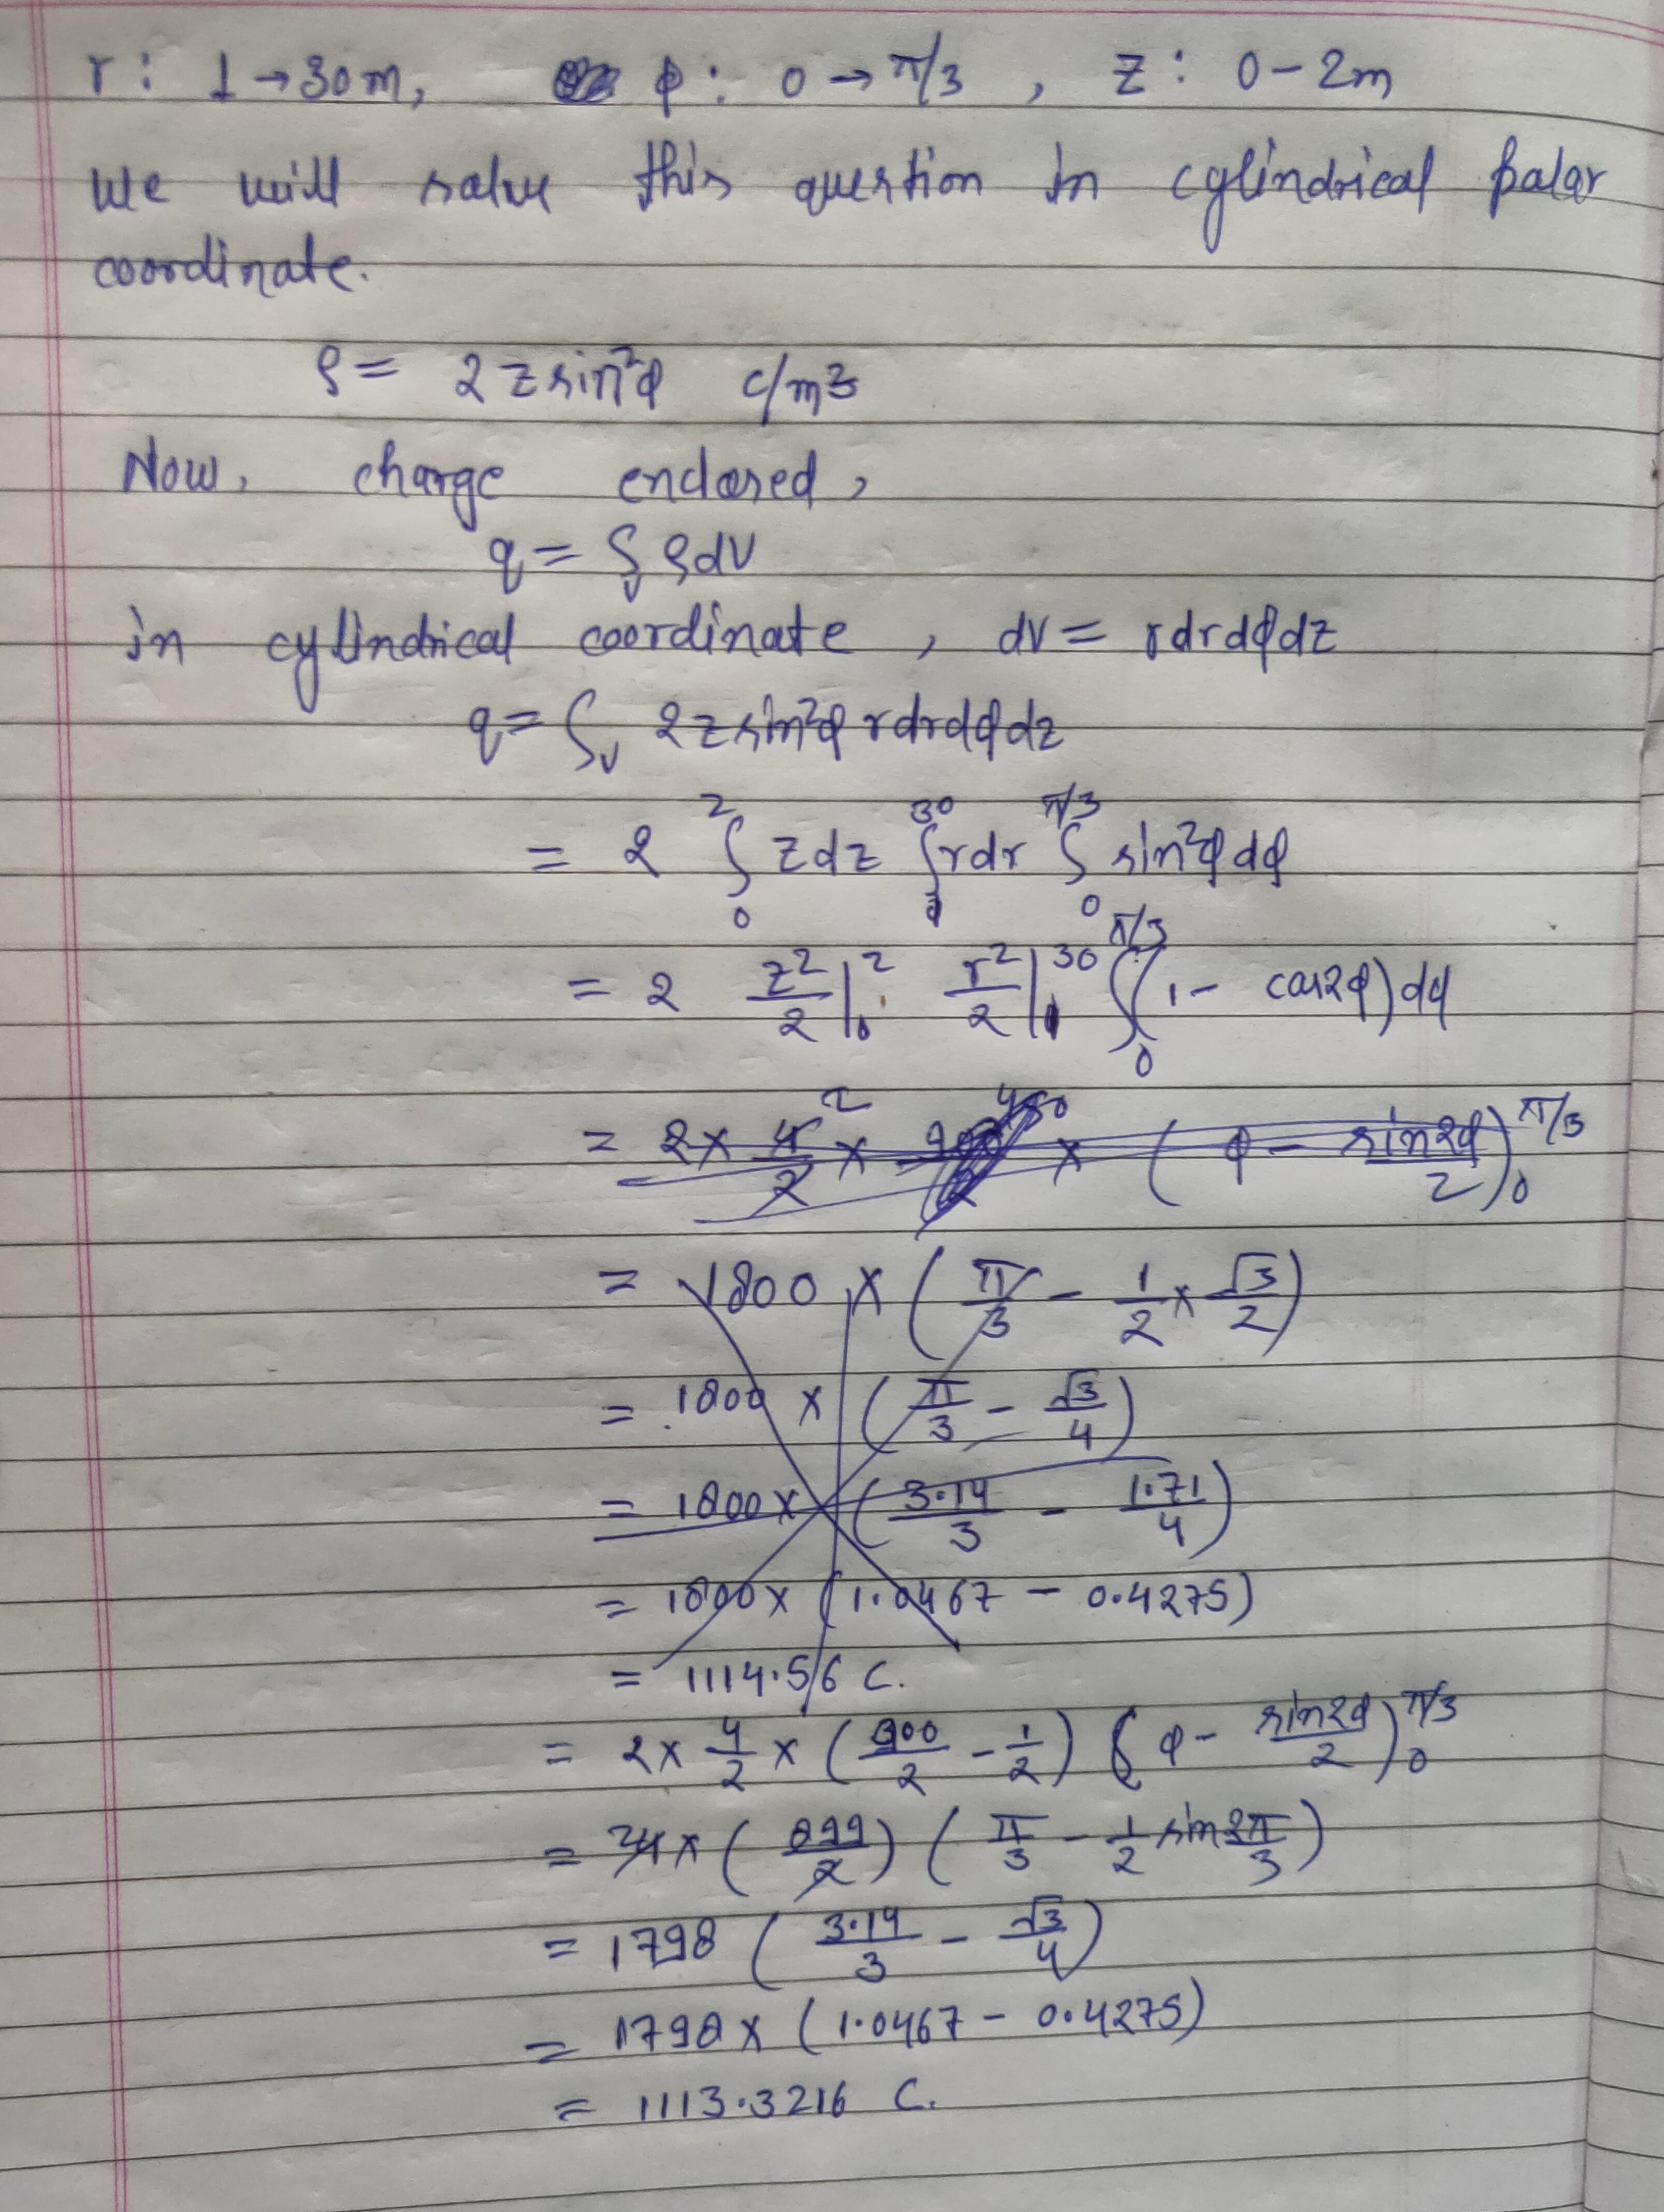 r: 1→30m, φ: 0→π/3, z: 0-2m
We will solve this question in cylindrical polar
coordinate.
ρ= 2zsin²φ c/m³
Now, charge enclosed,
q= ∫ᵥ ρdV
in cylindrical coordinate, dv= rdrdφdz
q= ∫ᵥ 2zsin²φ rdrdφdz
= 2 ∫₀² zdz ∫₁³⁰ rdr ∫₀^π/3 sin²φdφ
= 2 z²/2|₀² r²/2|₁³⁰ ∫₀^π/3 (1- cos2φ)dφ
= 2× 4/2 × 900/2 × (φ - sin2φ/2)₀^π/3
= 1800 × (π/3 - 1/2 × √3/2)
= 1800 × (π/3 - √3/4)
= 1800× (3.14/3 - 1.71/4)
= 1800× (1.0467 - 0.4275)
= 1114.56 C.
= 2× 4/2 × (900/2 - 1/2) (φ- sin2φ/2)₀^π/3
= 4× (899/2) (π/3 - 1/2 sin2π/3)
= 1798 (3.14/3 - √3/4)
= 1798× (1.0467- 0.4275)
= 1113.3216 C.